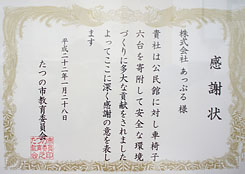 感謝状
株式会社 あっぷる 様
貴社は公民館に対し車椅子
六台を寄附して安全な環境
づくりに多大な貢献をされました
よってここに深く感謝の意を表し
ます
平成二十二年一月二十八日
たつの市教育委員会